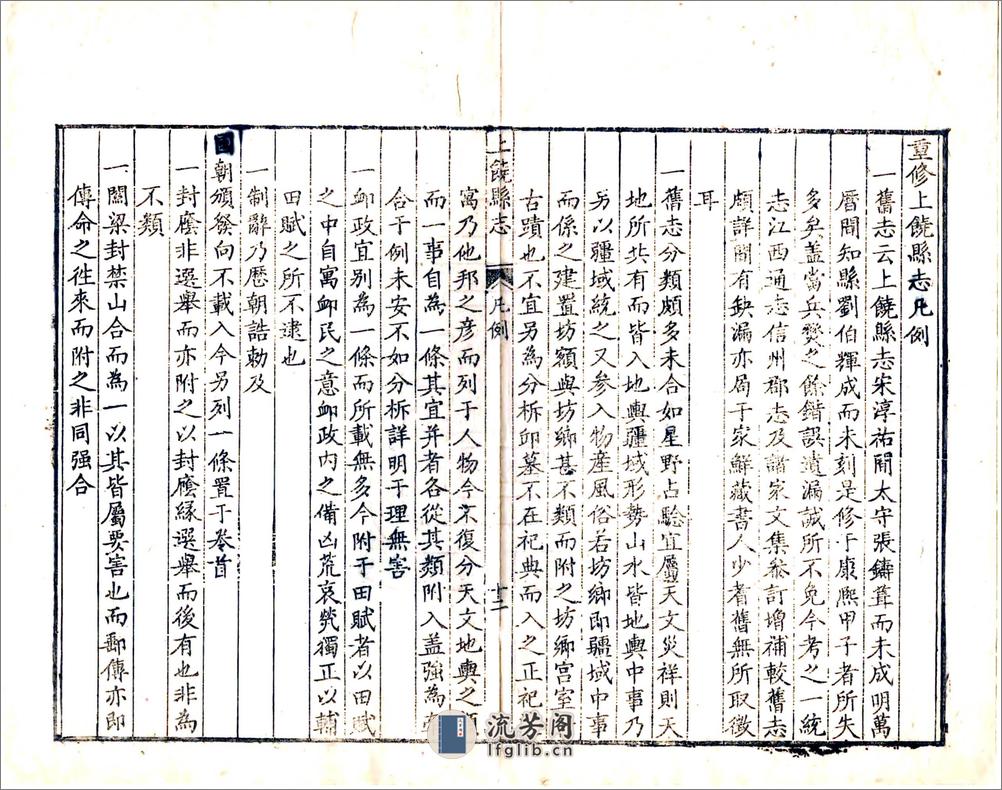 重修上饒縣志凡例
一舊志云上饒縣志宋淳祐間太守張鑄葺而未成明萬
曆間知縣劉伯輝成而未刻是修于康熙甲子者所失
多矣盖當兵燹之餘錯誤遺漏誠所不免今考之一統
志江西通志信州郡志及諸家文集參訂增補較舊志
頗詳間有缺漏亦局于家鮮藏書人少耆舊無所取徵
耳
一舊志分類頗多未合如星野占驗宜屬天文災祥則天
地所共有而皆入地輿疆域形勢山水皆地輿中事乃
另以疆域統之又參入物産風俗若坊鄉即疆域中事
而係之建置坊額與坊鄉甚不類而附之坊鄉宮室
古蹟也不宜另為分柝卹墓不在祀典而入之正祀
上饒縣志
凡例
十二
寓乃他邦之彦而列于人物今不復分天文地輿之
而一事自為一條其宜并者各從其類附入盖強為
合于例未安不如分柝詳明于理無害
一卹政宜别為一條而所載無多今附于田賦者以田賦
之中自寓卹民之意卹政内之備凶荒哀煢獨正以輔
田賦之所不逮也
一制辭乃歷朝誥勅及
國朝頒發向不載入今另列一條置于卷首
一封廕非選舉而亦附之以封廕緣選舉而後有也非為
不類
一關梁封禁山合而為一以其皆屬要害也而郵傳亦即
傳命之徃來而附之非同强合
流芳阁
lfglib.cn